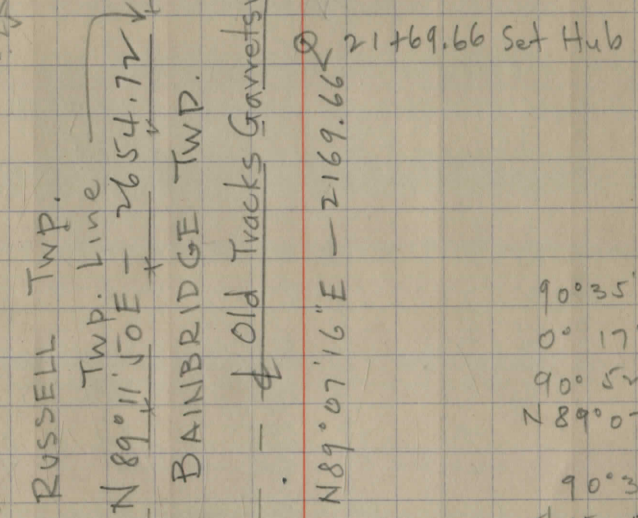 RUSSELL TWP.
Twp. Line
N 89° 11' 50 E - 2654.72
BAINBRIDGE TWP.
℄ Old Tracks
N89°07'16"E - 2169.66
21+69.66 Set Hub
90° 35
0° 17
90° 5
N 89° 0
90° 3